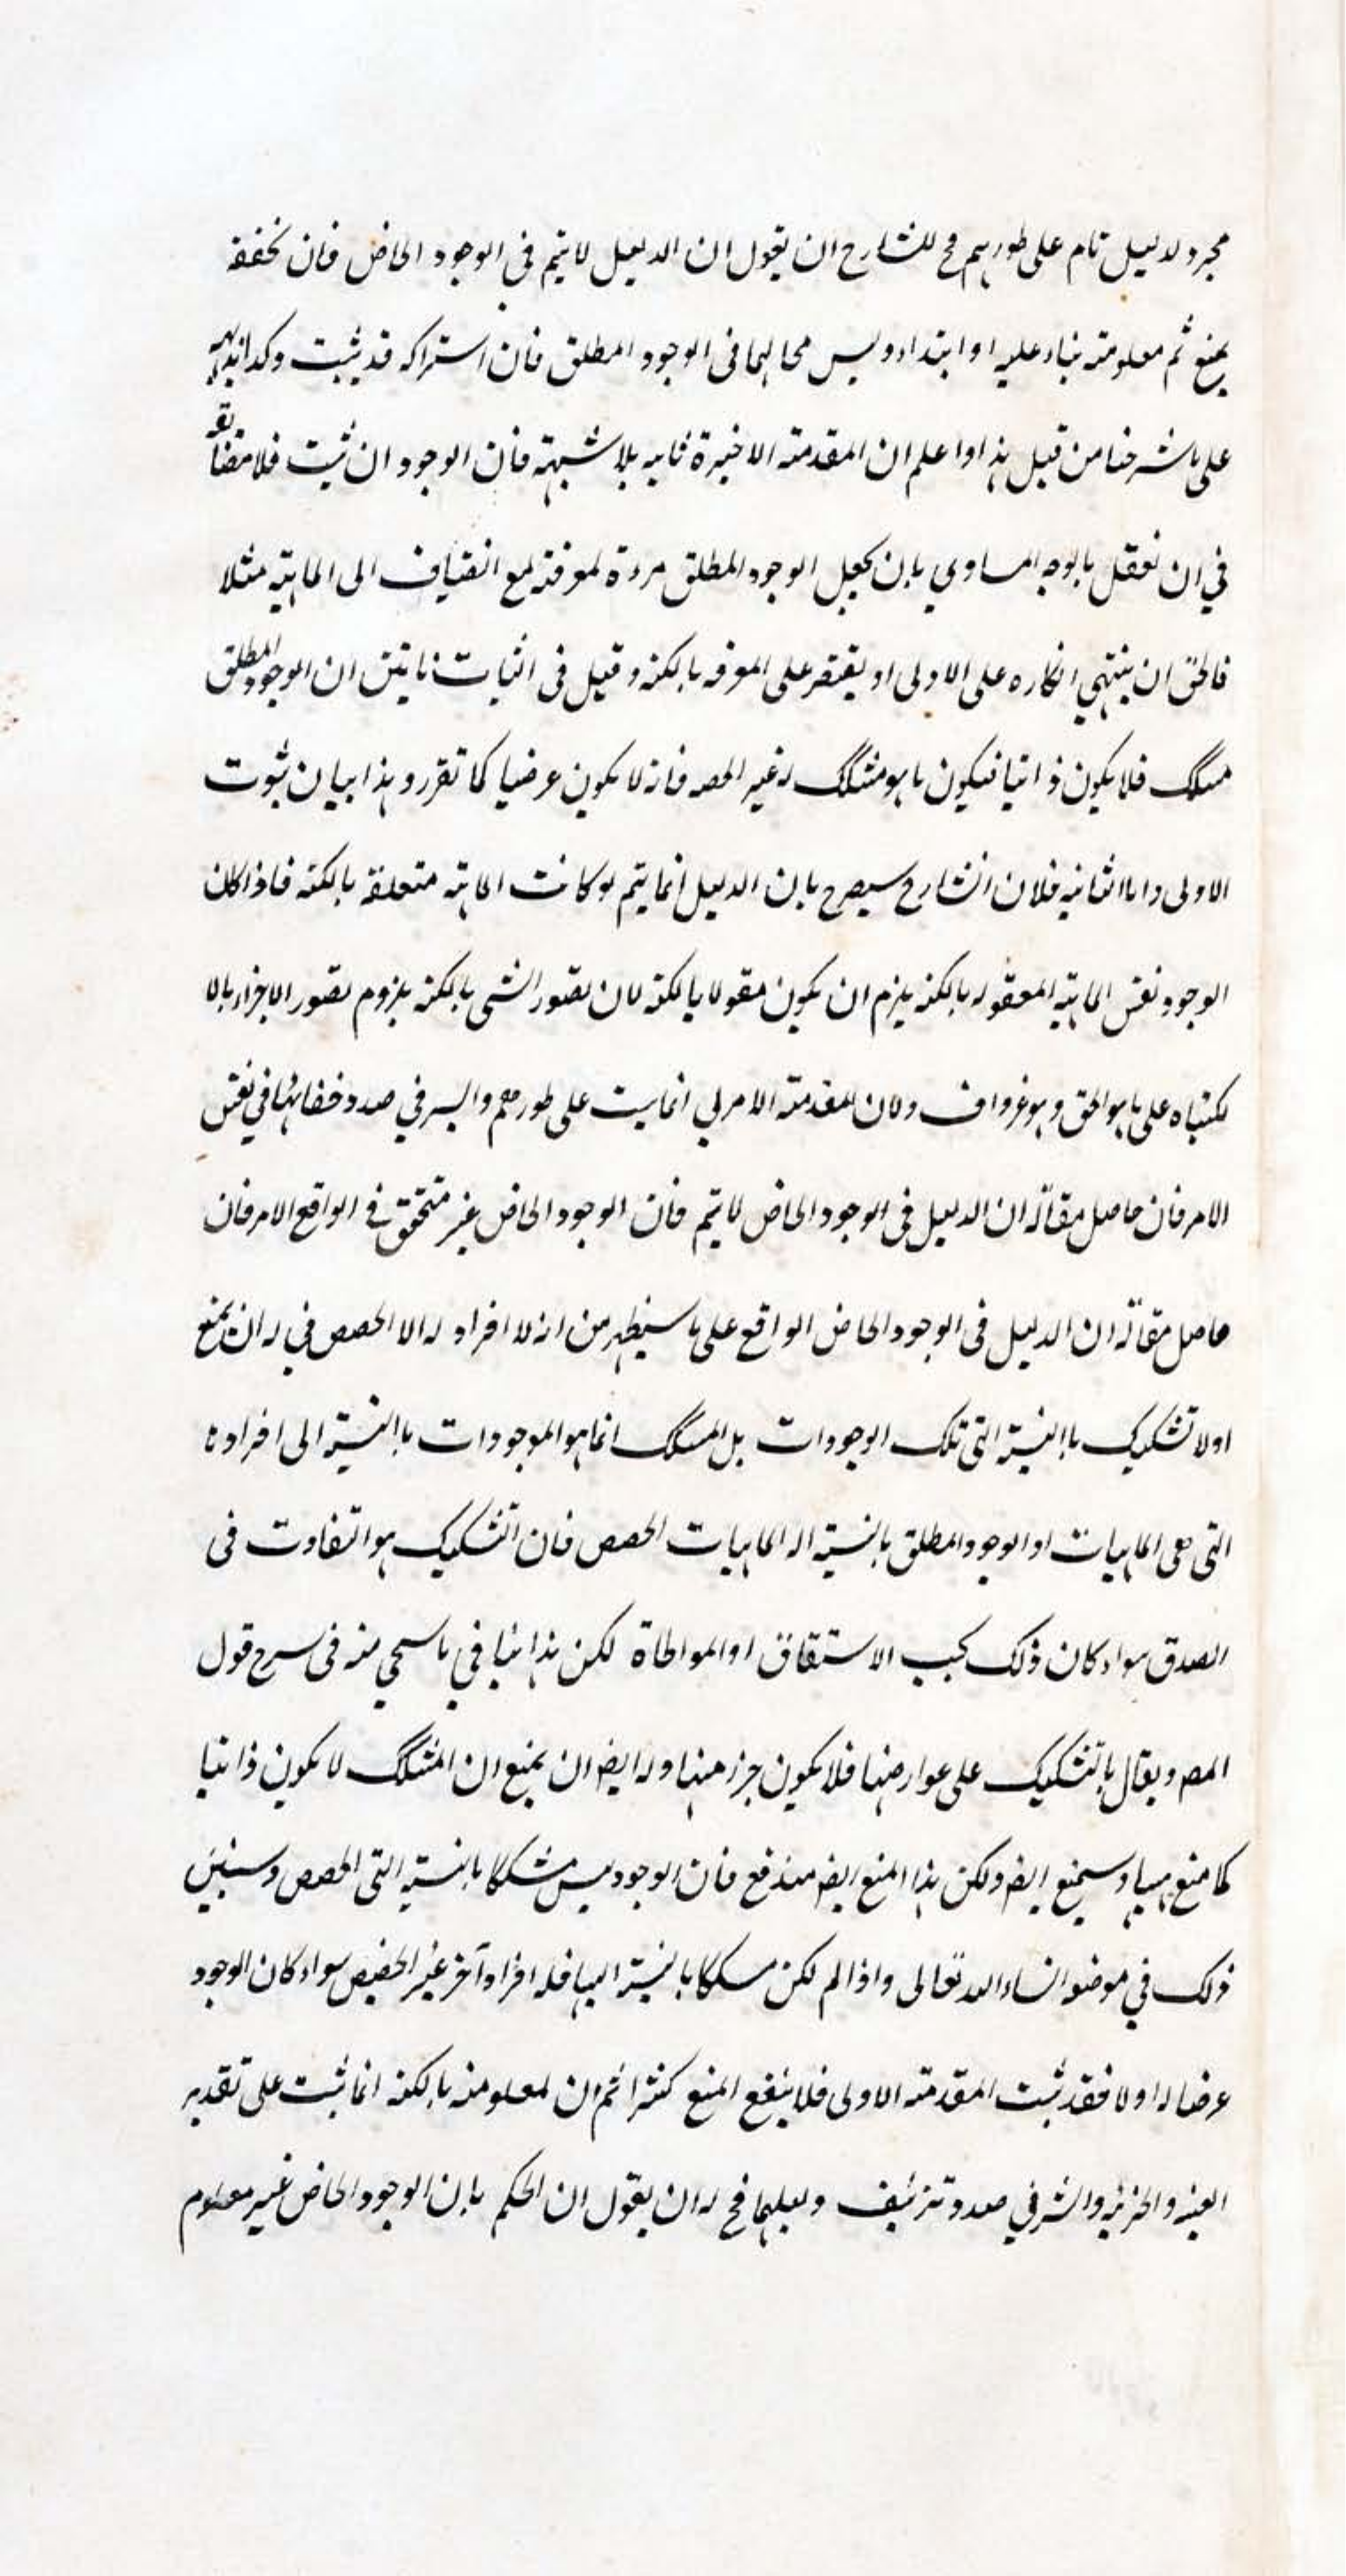 مجرد لدليل تام على طورهم فح للشارح ان يقول ان الدليل لا يتم في الوجود الخاض فان تحققه
يمنع ثم معلومته بناء عليه او ابتداء وليس محالهما فى الوجود المطلق فان استراكه قد يثبت وكد
على ما شرحنا من قبل هذا واعلم ان المقدمته الاخيرة ثابيه بلا شبهته فان الوجود ان ثبت فلا مضا
في ان تعقل بالوجه المساوي بان يجعل الوجود المطلق مرءة لمعرفته مع انضياف الى الماهيته مثلا
فالحق ان ينتهي انكاره على الاولى او يقتصر على المعرفه بالكنه وقيل فى اثبات ان الوجود المطلق
مسكك فلا يكون ذاتيا فيكون ما هو مشكك له غير الحصه فانه لا يكون عرضيا كما تقرر وهذا بيان ثبوت
الاولى واما الثانيه فلان الشارح سيصرح بان الدليل انما يتم لو كانت الماهيته متعلقه بالكنه فاذا كان
الوجود نفس الماهيته المعقوله بالكنه يلزم ان يكون مقولا بالكنه لان تصور الشى بالكنه يلزوم تصور الاجزاء بالا
لكتباه على ما هو الحق وهو غرواف ولان المقدمته الامرلي انمايت على طورهم والسر في صدد خفائها في نفس
الامر فان حاصل مقاله ان الدليل فى الوجود الخاض لا يتم فان الوجود الخاض غير متحقق في الواقع الامر فان
حاصل مقاله ان الدليل فى الوجود الخاض الواقع على ما سيظهر من انه لا افراد له الا الحصص في له ان يمنع
اولا تشكيك باالنسبة التى تلك الوجودات بل المسكك انما هو الموجودات باالنسبة الى افرادها
التى هى الماهيات او الوجود المطلق بالنسبة اله الماهيات الحصص فان التشكيك هو التفاوت فى
الصدق سواء كان ذلك بحسب الاستقاق او المواطاة لكن هذا ينافي ما سحي منه فى سرح قول
المص ويقال بالتشكيك على عوارضها فلا يكون جزء منها وله ايضا ان يمنع ان المشكك لا يكون ذاتيا
كما منع ههنا وسيمنع ايضا ولكن هذا المنع ايضا مندفع فان الوجود ليس مشككا بالنسبة التى الحصص وسنبين
ذلك في موضعه انشاء الله تعالى واذا لم لكن مسككا بالنسبة اليها فله افراد آخر غير الحصص سواء كان الوجود
عرضا له او لا فقد ثبت المقدمته الاولى فلا ينفع المنع كثرا ثم ان لمعلومنه بالكنه انما ثبت على تقدير
العينه والجزئيه والشر في صدد تزئيف ولعلهما فح له ان يقول ان الحكم بان الوجود الخاض غير معلوم